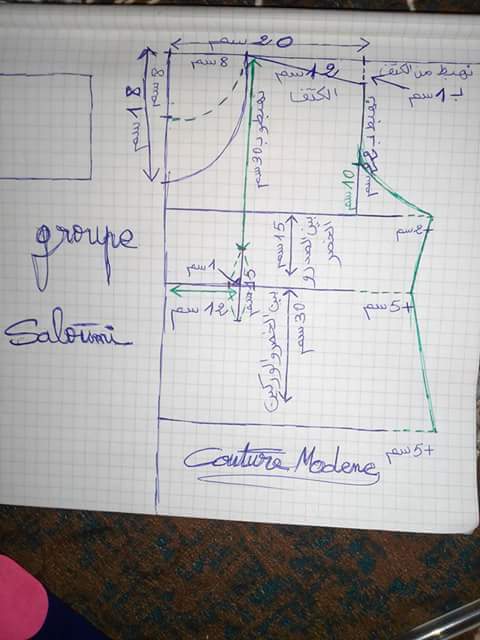 20 سم
8 سم
12 سم
الكتف
نهبط من الكتف
ب 1 سم
18 سم
8 سم
نهبطو ب 30 سم
نهبط ب
10 سم
بين الصدر و
الخصر
15 سم
1 سم
15 سم
12 سم
بين الخصر والوركين
30 سم
+5 سم
+5 سم
groupe
Saloumi
Couture Modene